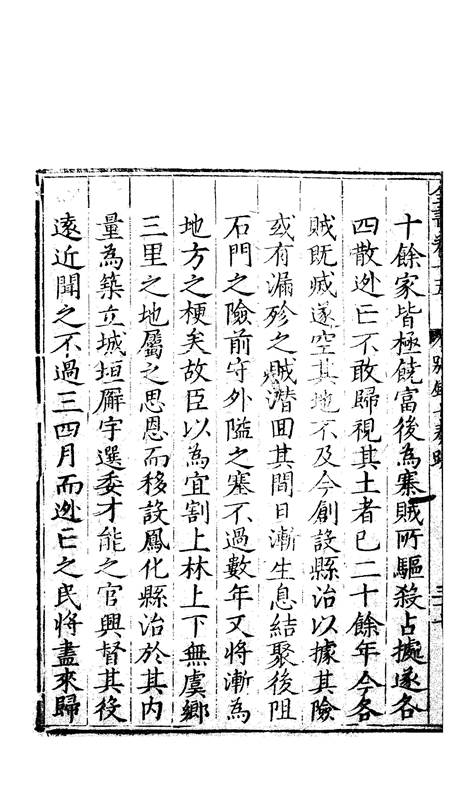 十餘家皆極饒富後為寨賊所驅殺占據遂各
四散迯亡不敢歸視其土者已二十餘年今各
賊既滅遂空其地不及今創設縣治以據其險
或有漏殄之賊潛囬其間日漸生息結聚後阻
石門之險前守外隘之塞不過數年又將漸為
地方之梗矣故臣以為宜割上林上下無虞鄉
三里之地屬之思恩而移設鳳化縣治於其内
量為築立城垣廨宇選委才能之官興督其役
遠近聞之不過三四月而迯亡之民將盡來歸